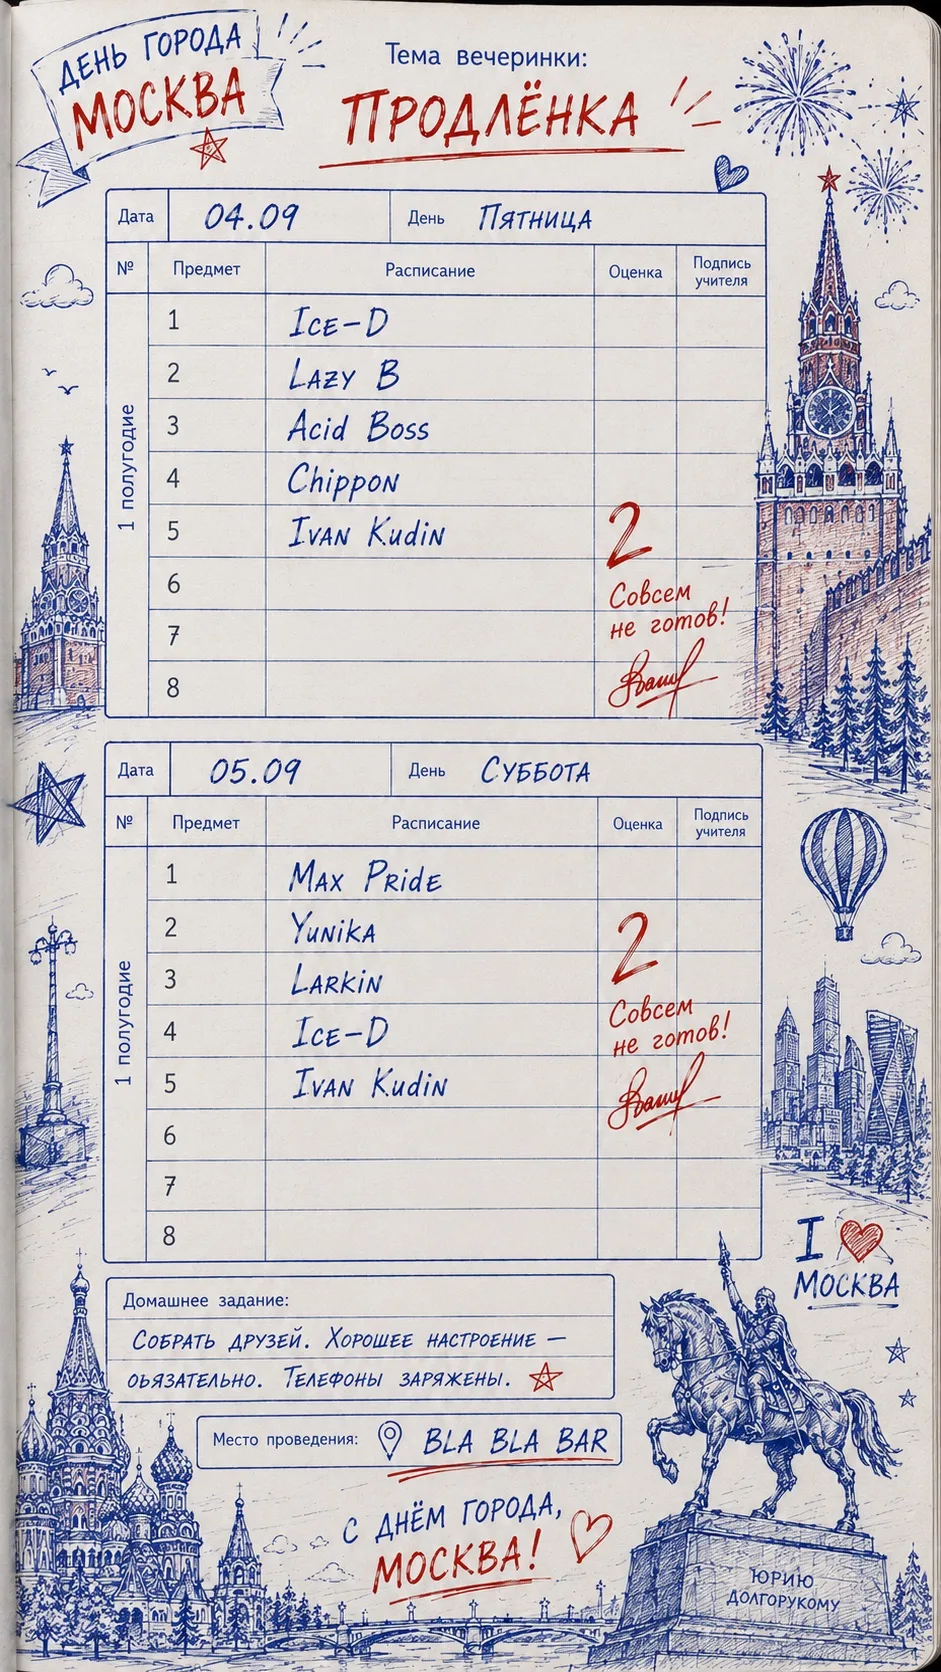 ДЕНЬ ГОРОДА
МОСКВА
Тема вечеринки:
ПРОДЛЁНКА
Дата 04.09 День ПЯТНИЦА
№ Предмет Расписание Оценка Подпись учителя
1 полугодие
1 ICE-D
2 LAZY B
3 Acid Boss
4 Chippon
5 IVAN Kudin
2
6
Совсем
не готов!
7
8
Дата 05.09 День СУББОТА
№ Предмет Расписание Оценка Подпись учителя
1 полугодие
1 MAX PRidE
2 YUNIKA
2
3 LARKIN
Совсем
не готов!
4 ICE-D
5 IVAN Kudin
6
7
8
I
МОСКВА
Домашнее задание:
СОБРАТЬ ДРУЗЕЙ. ХОРОШЕЕ НАСТРОЕНИЕ –
ОЬЯЗАТЕЛЬНО. ТЕЛЕФОНЫ ЗАРЯЖЕНЫ.
Место проведения: BLA BLA BAR
С ДНЁМ ГОРОДА,
МОСКВА!
ЮРИЮ
ДОЛГОРУКОМУ